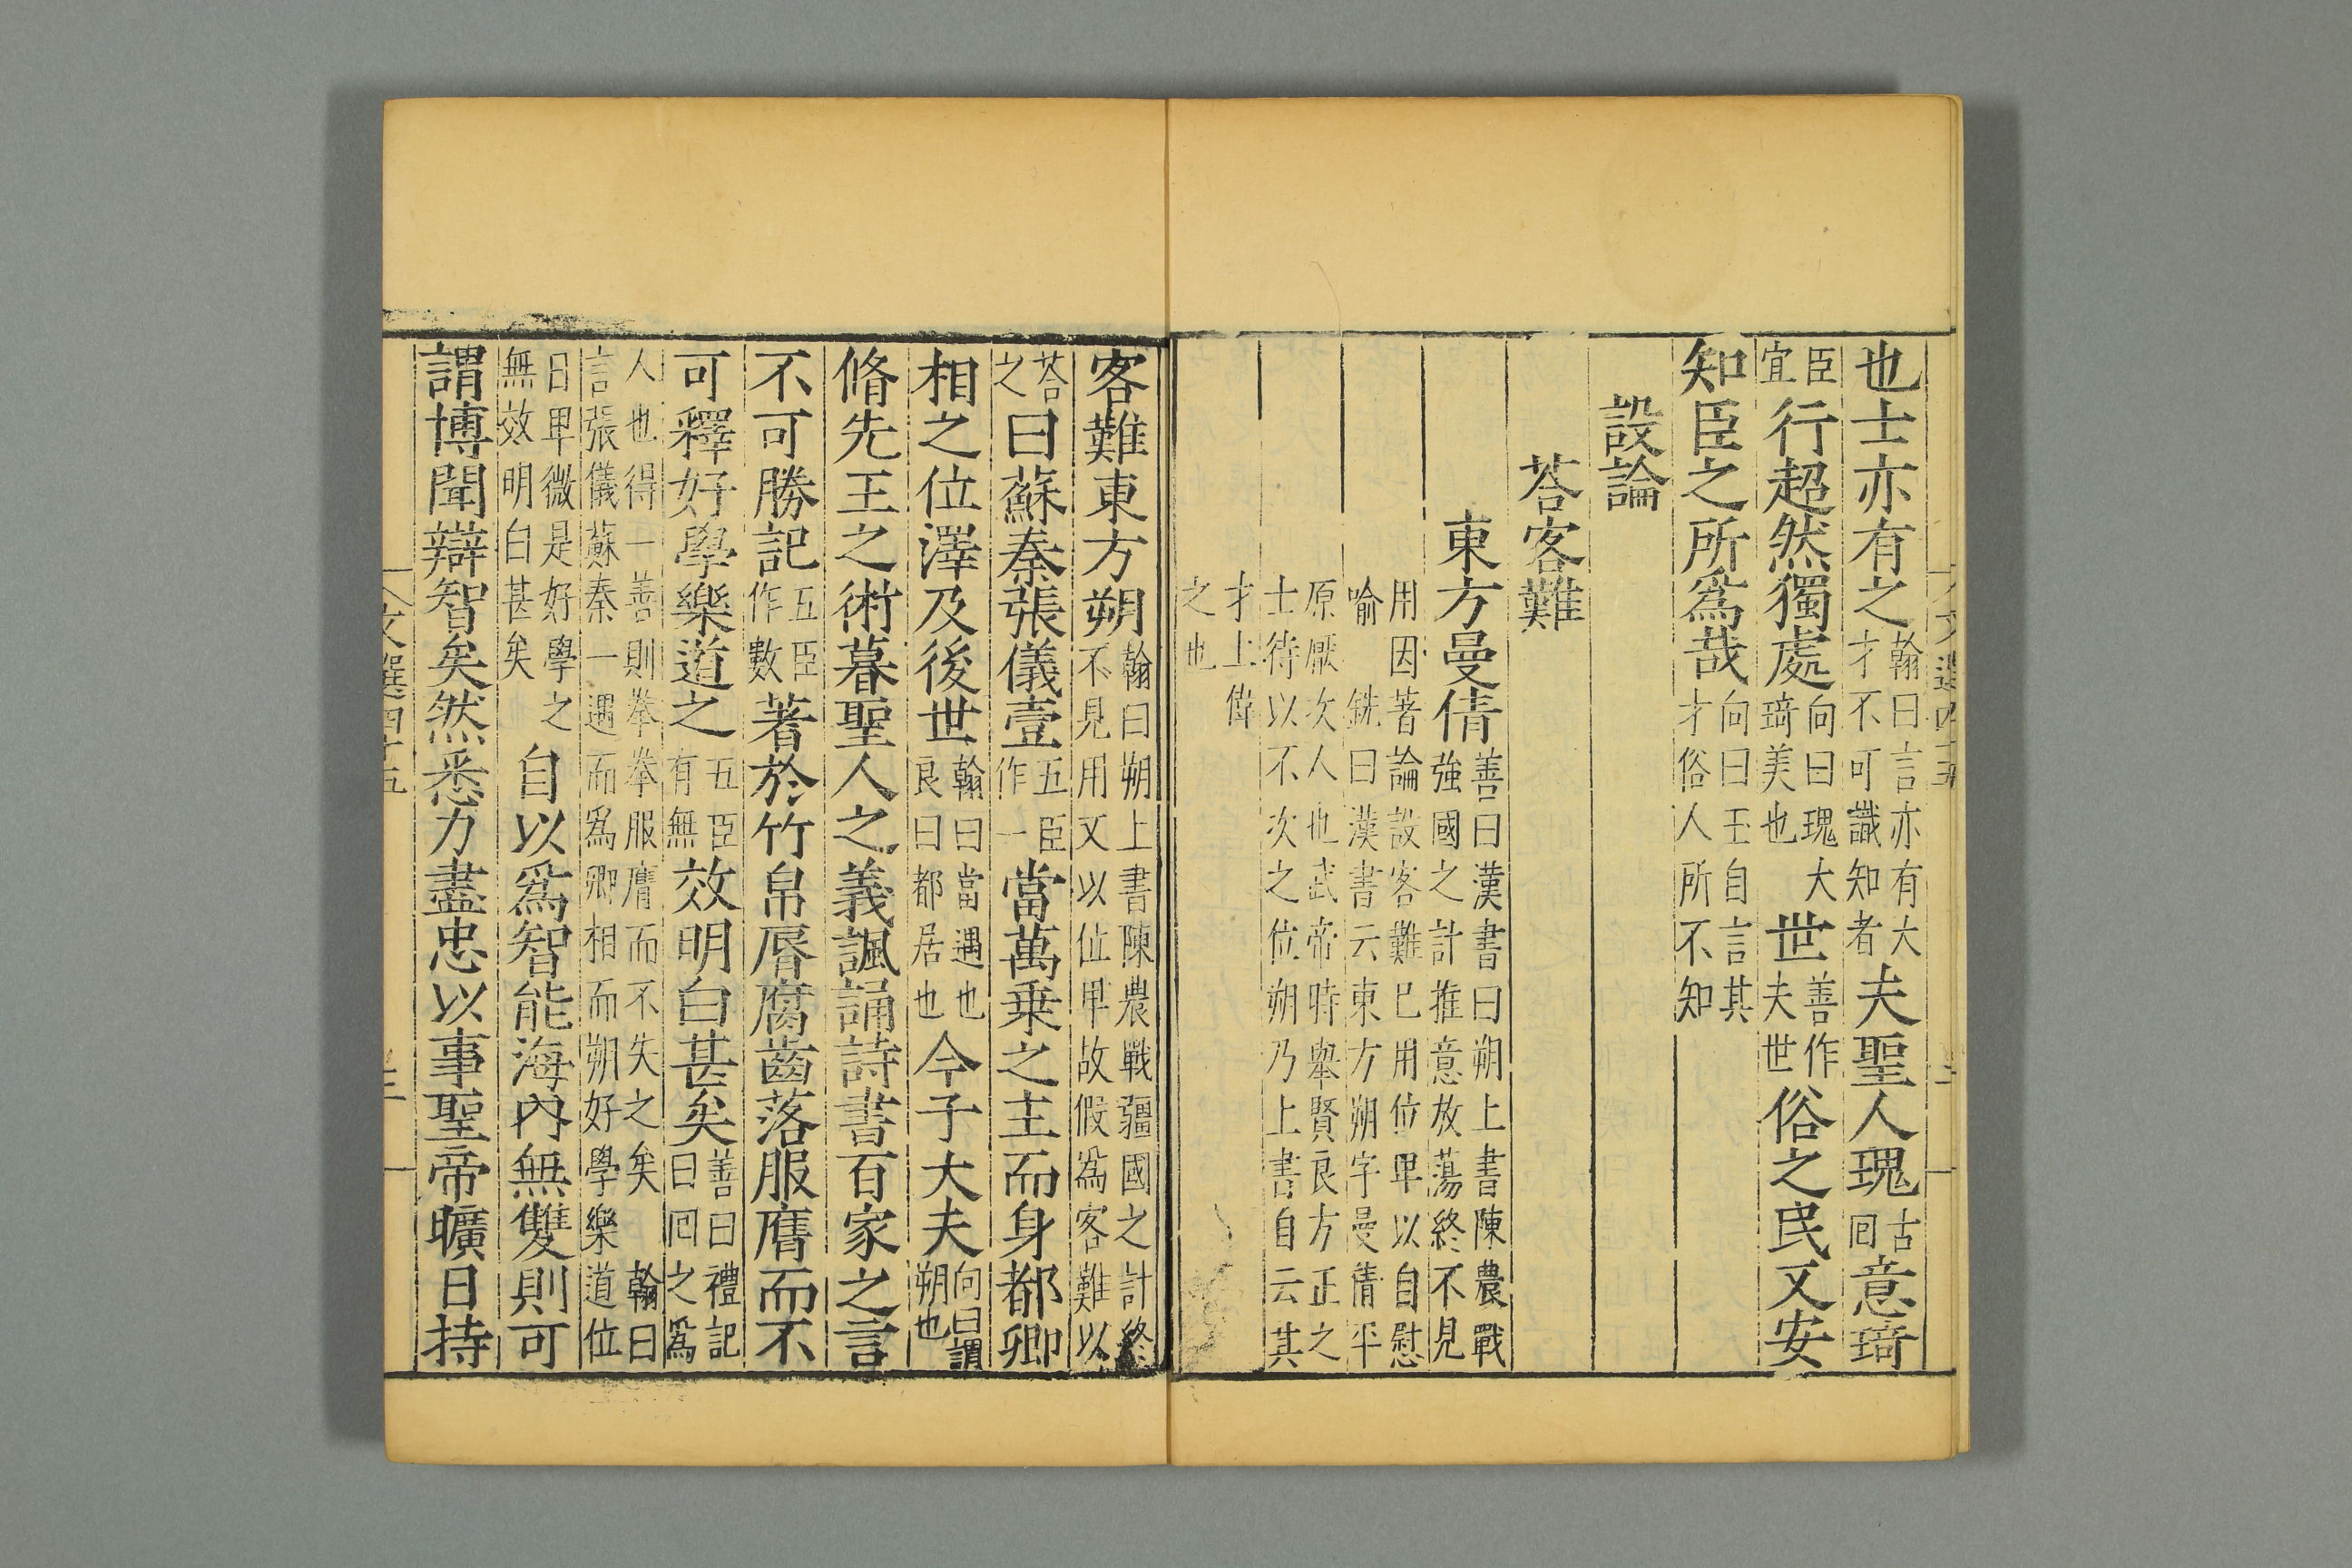 也士亦有之翰曰言亦有大才不可識知者夫聖人瑰古回意琦
臣宜行超然獨處向曰瑰大琦美也世善作夫世俗之民又安
知臣之所爲哉向曰玉自言其才俗人所不知
設論
荅客難
東方曼倩善曰漢書曰朔上書陳農戰強國之計推意放蕩終不見
用因著論設客難已用位卑以自慰喻銑曰漢書云東方朔字曼倩平
原厭次人也武帝時舉賢良方正之士待以不次之位朔乃上書自云其
才上偉之也
客難東方朔翰曰朔上書陳農戰疆國之計終不見用又以位卑故假爲客難以
荅之曰蘇秦張儀壹五臣作一當萬乗之主而身都卿
相之位澤及後世翰曰當遇也良曰都居也今子大夫向曰謂朔也
脩先王之術暮聖人之義諷誦詩書百家之言
不可勝記五臣作數著於竹帛脣腐齒落服膺而不
可釋好學樂道之五臣有無效明白甚矣善曰禮記曰回之爲
人也得一善則拳拳服膺而不失之矣翰曰言張儀蘇秦一遇而爲卿相而朔好學樂道位
日卑微是好學之無效明白甚矣自以爲智能海內無雙則可
謂博聞辯智矣然悉力盡忠以事聖帝曠日持
文選四十五